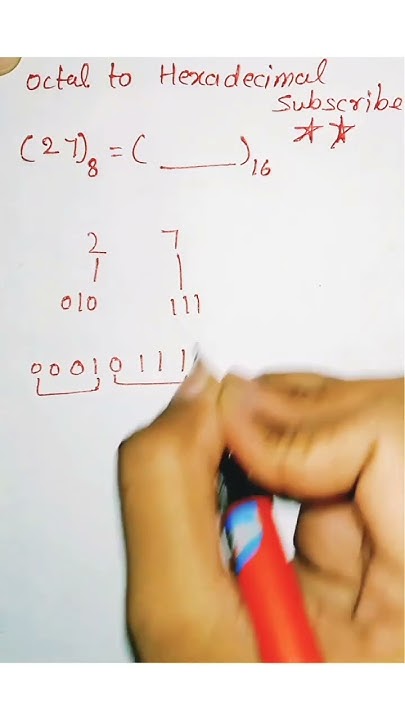 Octal to Hexadecimal
Subscribe
(27)8 = ( ____ )16
2 7
010 111
00010111